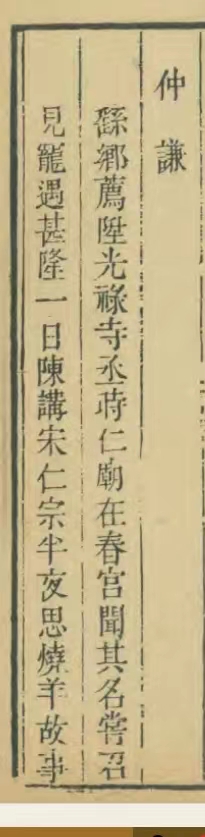 仲謙
繇郷薦陞光祿寺丞時仁廟在春宮聞其名嘗召
見寵遇甚隆一日陳講宋仁宗半夜思燒羊故事